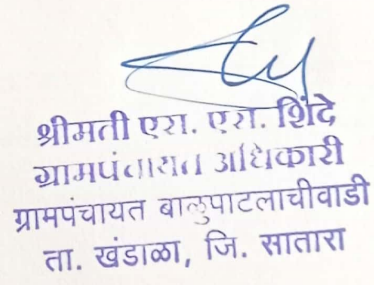 श्रीमती एस. एस. शिंदे
ग्रामपंचायत अधिकारी
ग्रामपंचायत बाळुपाटलाचीवाडी
ता. खंडाळा, जि. सातारा